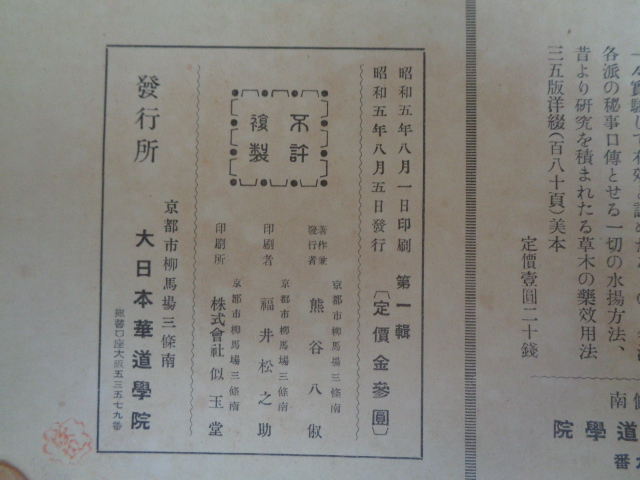 各派の秘事口傳とせる一切の水揚方法、
昔より研究を積まれたる草木の藥效用法
三五版洋綴(百八十頁)美本
定價壹圓二十錢
南
道學院
番
昭和五年八月一日印刷
昭和五年八月五日發行
第一輯
〔定價金參圓〕
不許
複製
著作兼
發行者
京都市柳馬場三條南
熊谷八俶
印刷者
京都市柳馬場三條南
福井松之助
印刷所
京都市柳馬場三條南
株式會社似玉堂
發行所
京都市柳馬場三條南
大日本華道學院
振替口座大阪五三五七九番